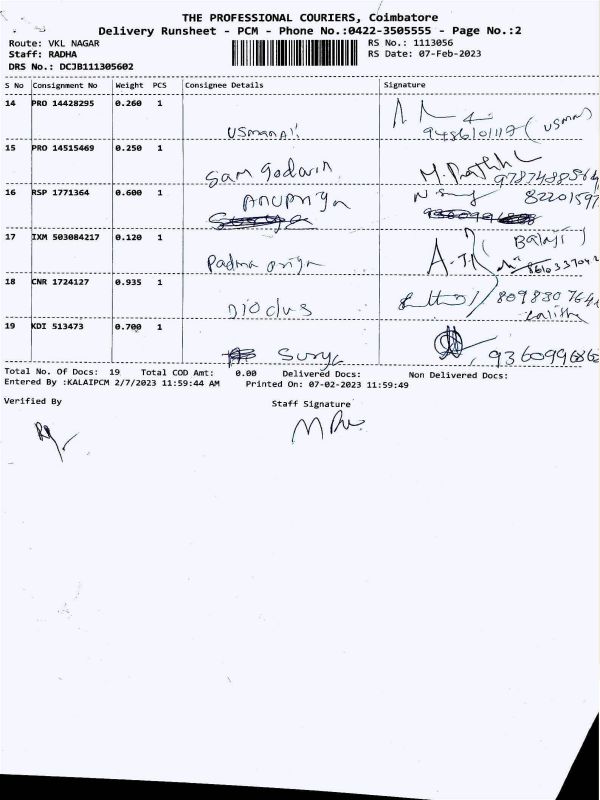 THE PROFESSIONAL COURIERS, Coimbatore
Delivery Runsheet - PCM - Phone No.:0422-3505555 - Page No.:2
Route: VKL NAGAR RS No.: 1113056
Staff: RADHA RS Date: 07-Feb-2023
DRS No.: DCJB111305602
S No Consignment No Weight PCS Consignee Details Signature
14 PRO 14428295 0.260 1
usmanali
15 PRO 14515469 0.250 1
Sam Godwin
16 RSP 1771364 0.600 1 Anupriya
17 IXM 503084217 0.120 1 (Balaji)
Padma priya
18 CNR 1724127 0.935 1
Dioclus
19 KDI 513473 0.700 1
Surya
Total No. Of Docs: 19 Total COD Amt: 0.00 Delivered Docs: Non Delivered Docs:
Entered By :KALAIPCM 2/7/2023 11:59:44 AM Printed On: 07-02-2023 11:59:49
Verified By Staff Signature